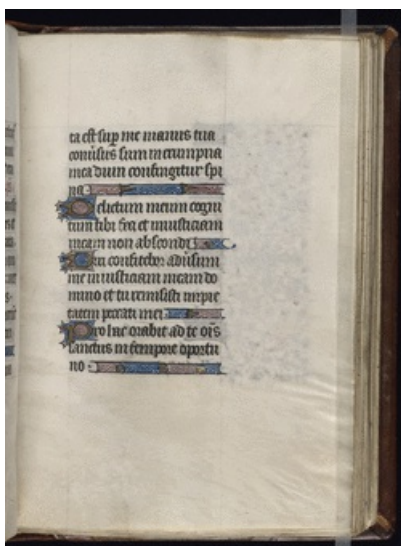 ta est sup me manus tua
conversus sum in erumpna
mea dum configitur spi
na
Delictum meum cogni
tum tibi feci et iniusticiam
meam non abscondi
Dixi confitebor adversum
me iniusticiam meam do
mino et tu remisisti impie
tatem peccati mei
Pro hac orabit ad te ois
sanctus in tempore oportu
no